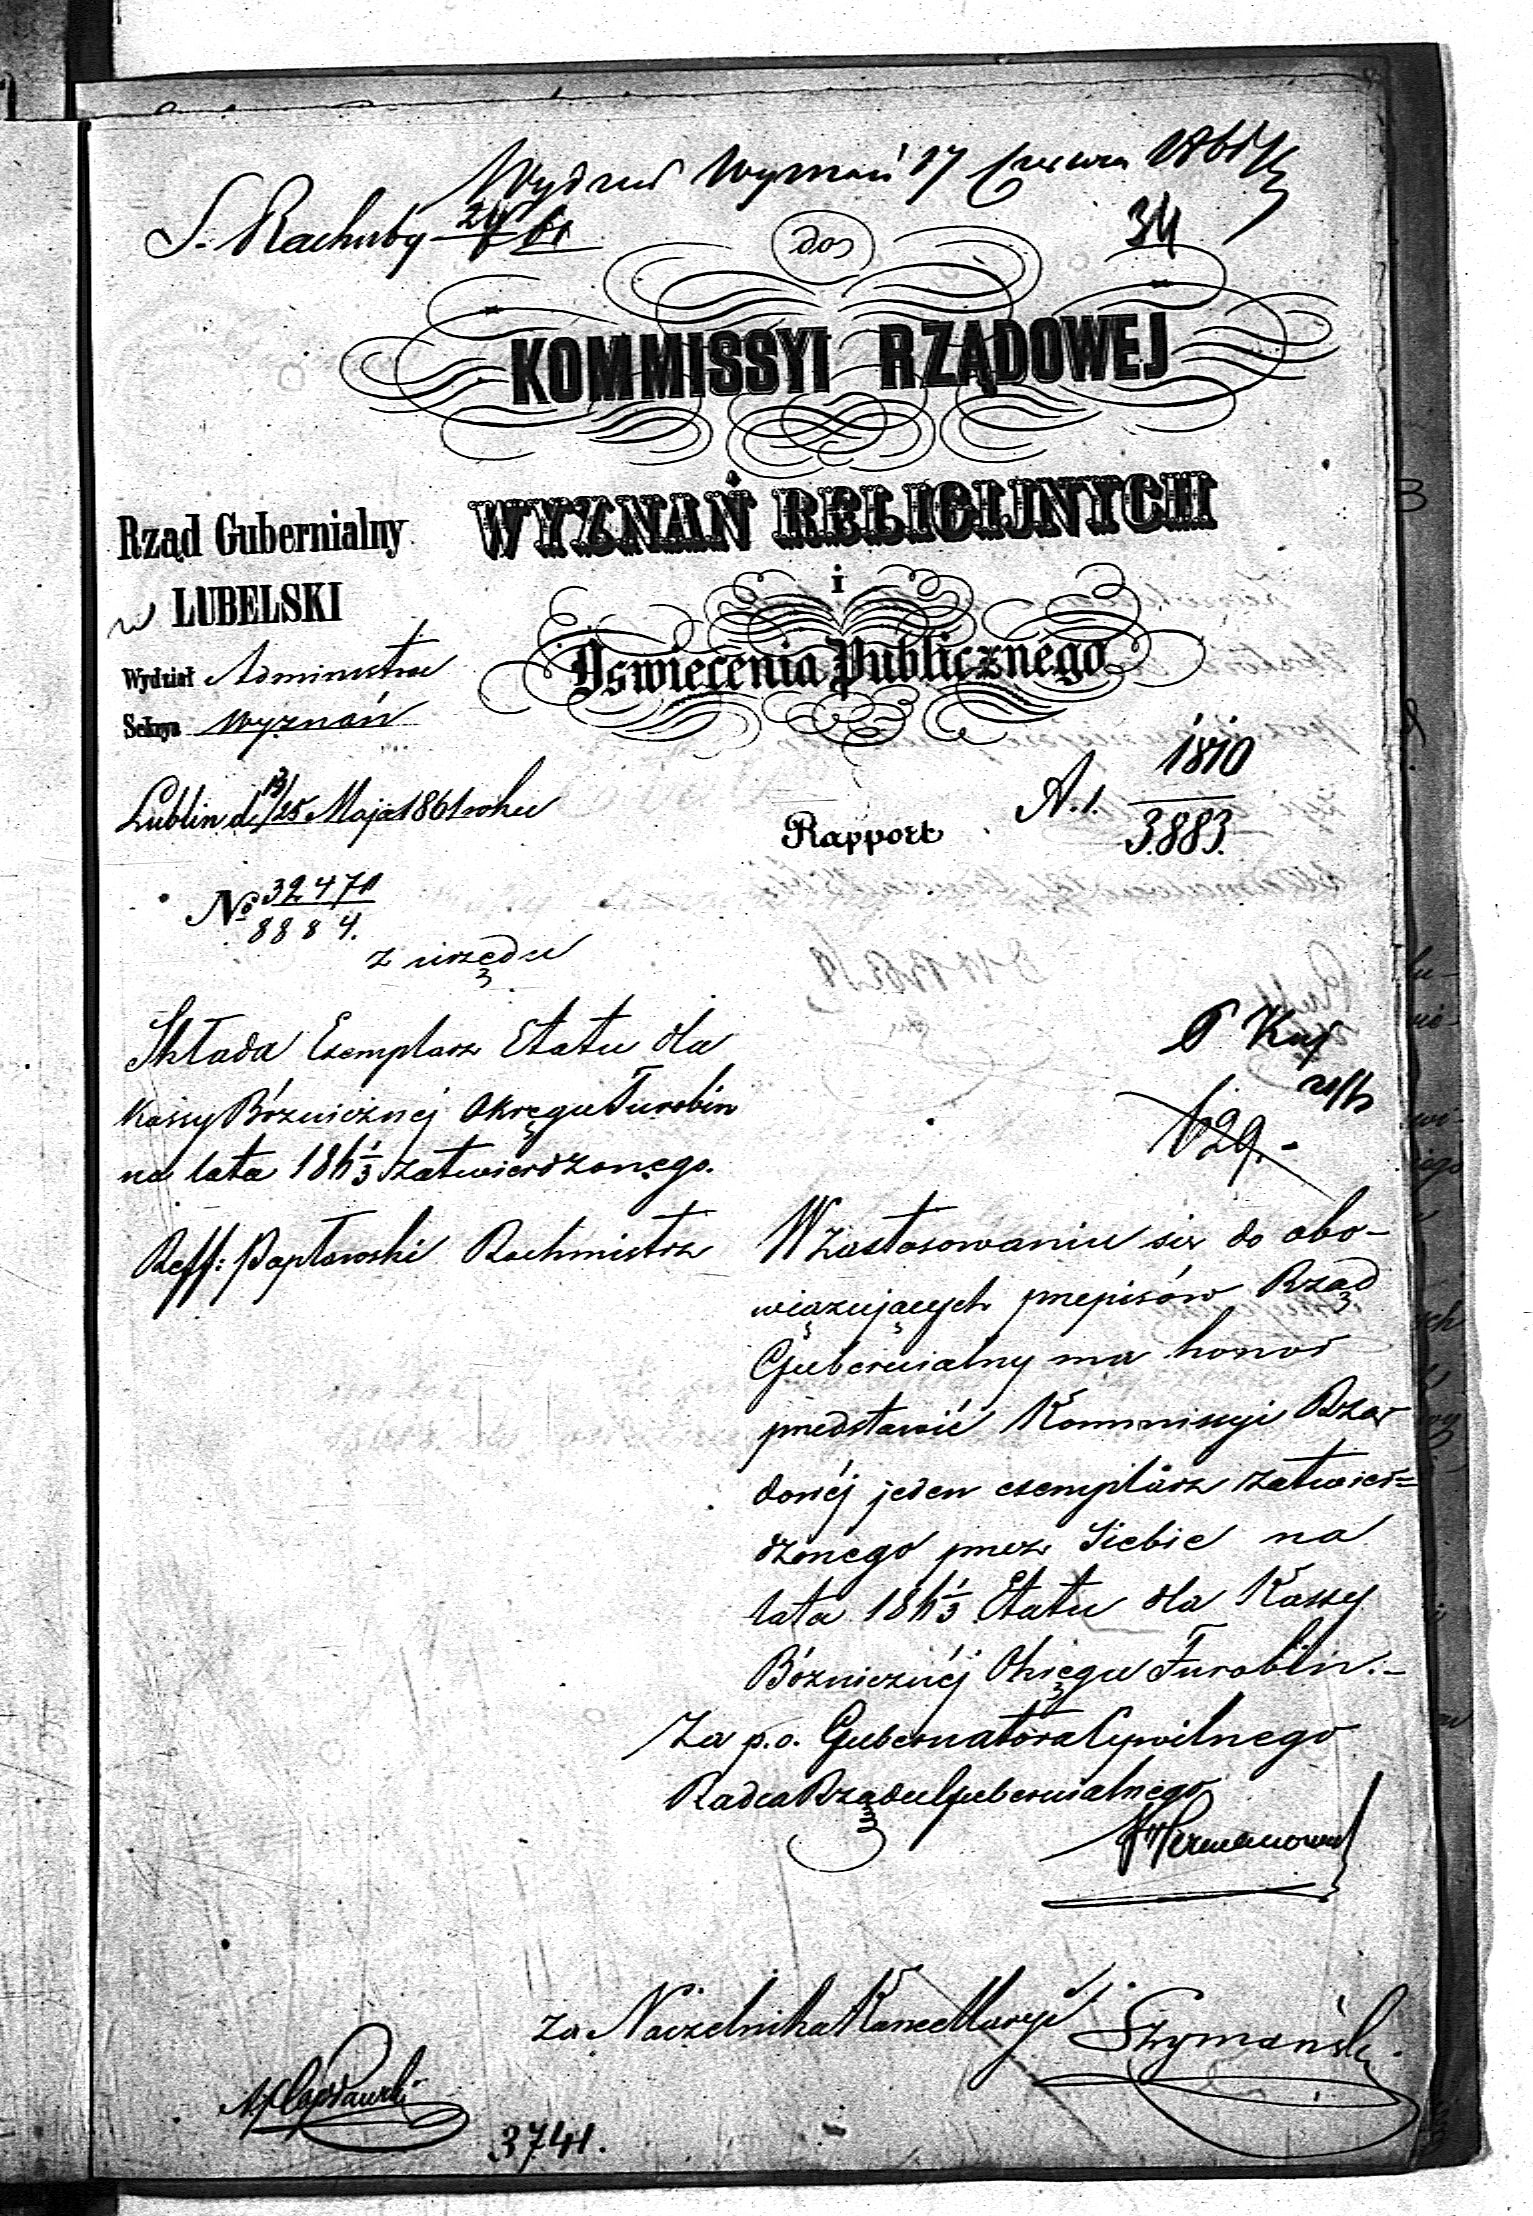 Wydział Wyznań 17 Czerwca 1861 r.
S. Rachuby 24/6 61
34
do
KOMMISSYI RZĄDOWEJ
WYZNAŃ RELIGIJNYCH
i
Oswiecenia Publicznego
Rząd Gubernialny
w LUBELSKI
Wydział Administra
Sekcya Wyznań
Lublin d. 13/25 Maja 1861 roku
Rapport
A.1. 1810/3883.
No 32470/8884.
z urzędu
Składa Exemplarz Etatu dla
Kassy Bóźnicznej Okręgu Turobin
na lata 186 1/3 zatwierdzonego.
Reff: Papłowski Rachmistrz
129.-
W zastosowaniu się do obo-
wiązujących przepisów Rząd
Gubernialny ma honor
przedstawić Kommissyi Rzą
dowéj jeden exemplarz zatwier=
dzonego przez siebie na
lata 186 1/3 Etatu dla Kassy
Bózniczéj Okręgu Turobin.-
Za p.o. Gubernatora Cywilnego
Radca Rządu Gubernialnego
za Naczelnika Kancellaryi Szymański
3741.